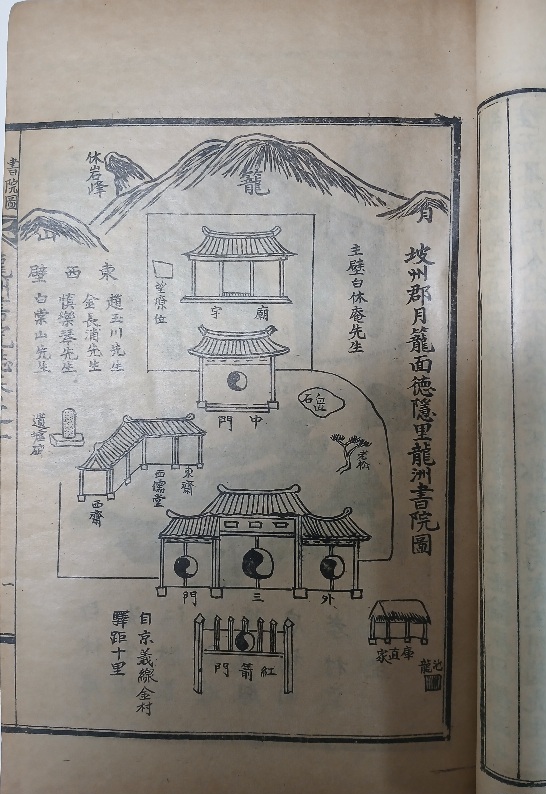 坡州郡月籠面德隱里龍洲書院圖
月
籠
山
休岩峰
主壁白休庵先生
廟宇
望燎位
中門
東 趙玉川先生
金長浦先生
西 愼樂琴先生
壁 白棠山先生
遺墟碑
老松
東齋
西齋
外三門
紅箭門
庫直家
自京義線金村
驛距十里
書院圖